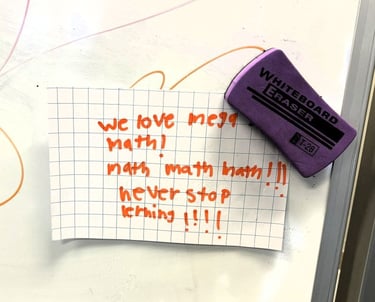 we love mega
math!
math math math!!!
never stop
lerning!!!!
WHITEBOARD
ERASER
T-26